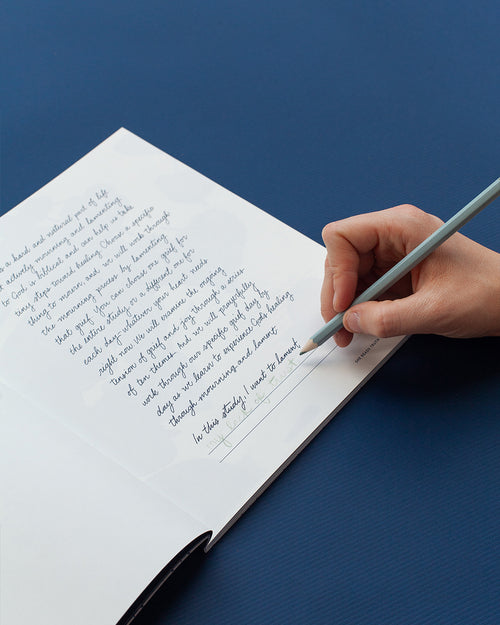 is a hard and natural part of life
actively mourning and lamenting
to God is biblical and can help us take
tiny steps toward healing. Choose a specific
thing to mourn and we will work through
the mourning process by lamenting
that grief. You can choose one grief for
the entire study, or a different one for
each day: whatever your heart needs
right now. We will examine the ongoing
tension of grief and joy through a series
of ten themes. And we will prayerfully
work through our specific grief day by
day as we learn to experience God's healing
through mourning and lament.
In this study, I want to lament
my lack of trust